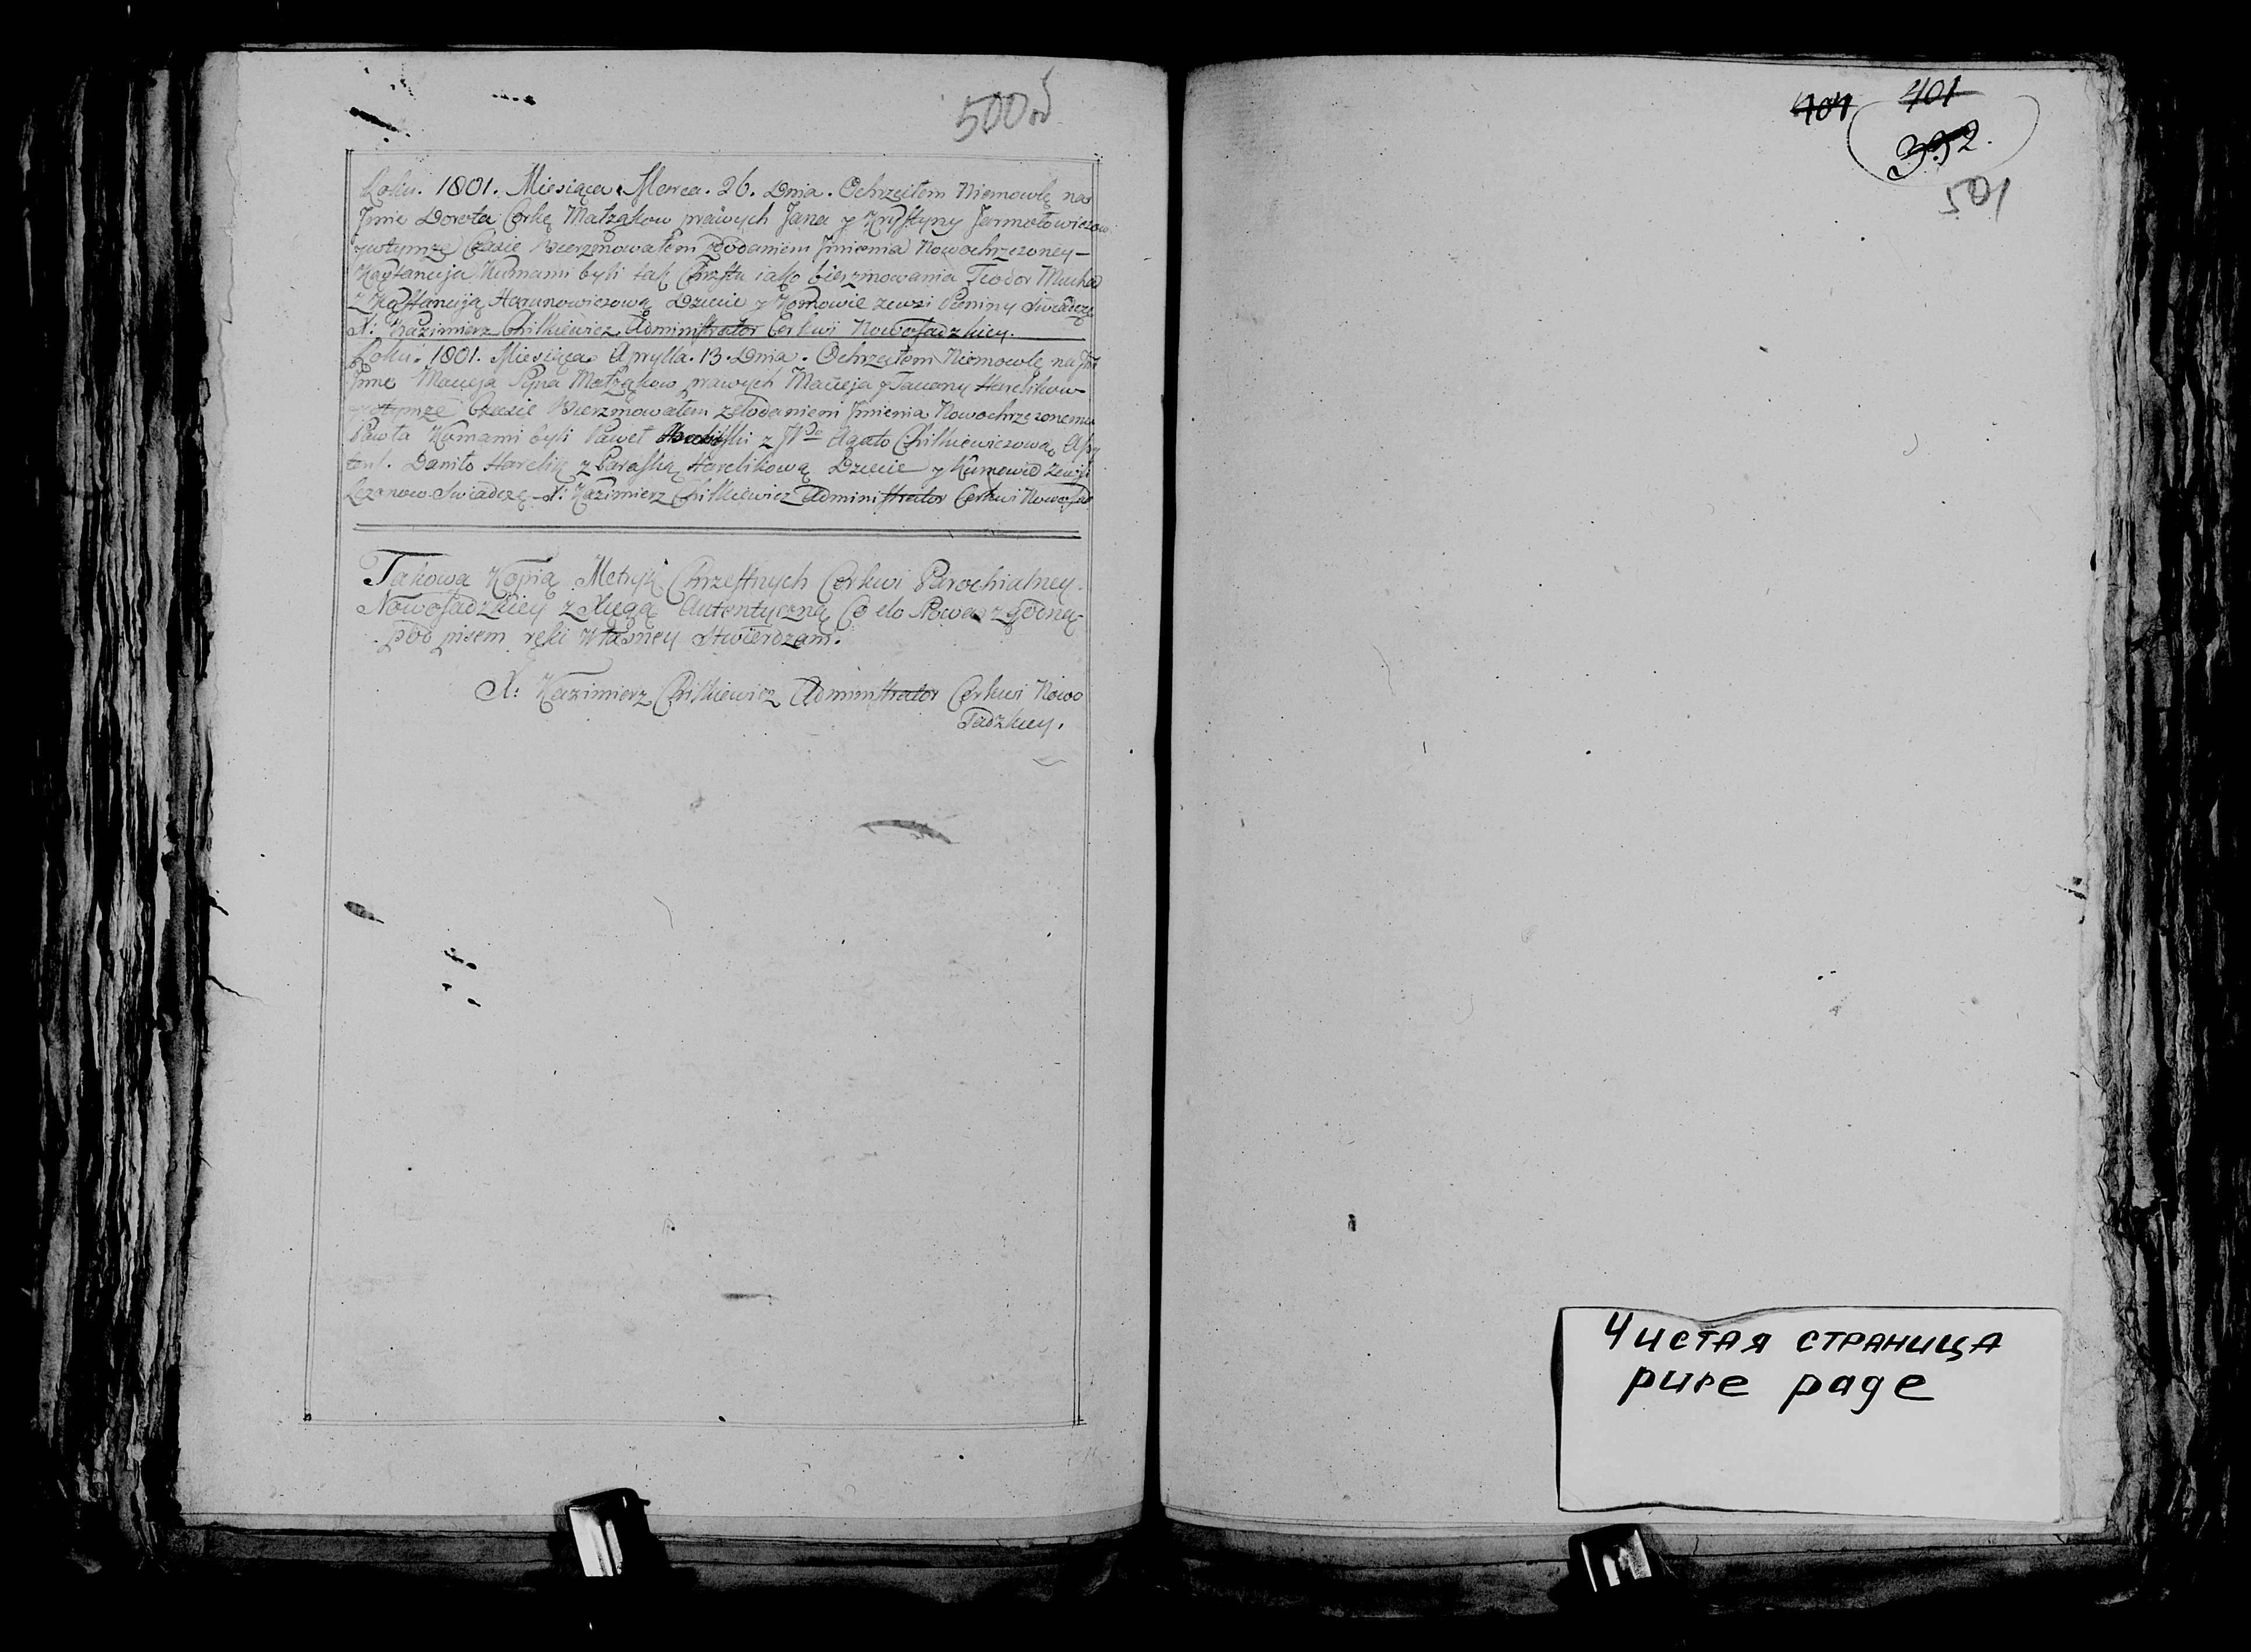 500 об
Roku. 1801. Miesiąca Marca. 26. Dnia. Ochrzciłem Niemowlę na
Jmie Dorota Corkę Małżąkow prawych Jana y Krystyny Jarmołowiczow
Czasie Bierzmowałem zdodaniem Jmienia Nowochrzczoney -
Kąstancyja Kumami byli tak Chrztu iako bierzmowania Teodor
z Kąstancyją Harunowiczową Dziecie y Kumowie zewsi Swiadczę
X: Kazimierz Chilkiewicz Administrator Cerkwi Nowosadzkiey.
Roku. 1801. Miesiąca Aprylla. 13. Dnia. Ochrzciłem Niemowlę na
Jmie Macieja Syna Małżąkow prawych Macieja y Tacany Harelikow
Czasie Bierzmowałem zdodaniem Jmienia Nowochrzczonemu
Pawła Kumami byli Paweł z Agatą Chilkiewiczową
tent. Daniło Harelik z Paraską Harelikową Dziecie y Kumowie
Swiadczę - X: Kazimierz Chilkiewicz Administrator Cerkwi
Takową Kopią Metryk Chrzestnych Cerkwi Parochialney
Nowosadzkiey z Xięgą Autentyczną Co do Słowa zgodną
podpisem ręki Własney Stwierdzam.
X: Kazimierz Chilkiewicz Administrator Cerkwi Nowo
sadzkiey.
401
392.
501
Чистая страница
pure page